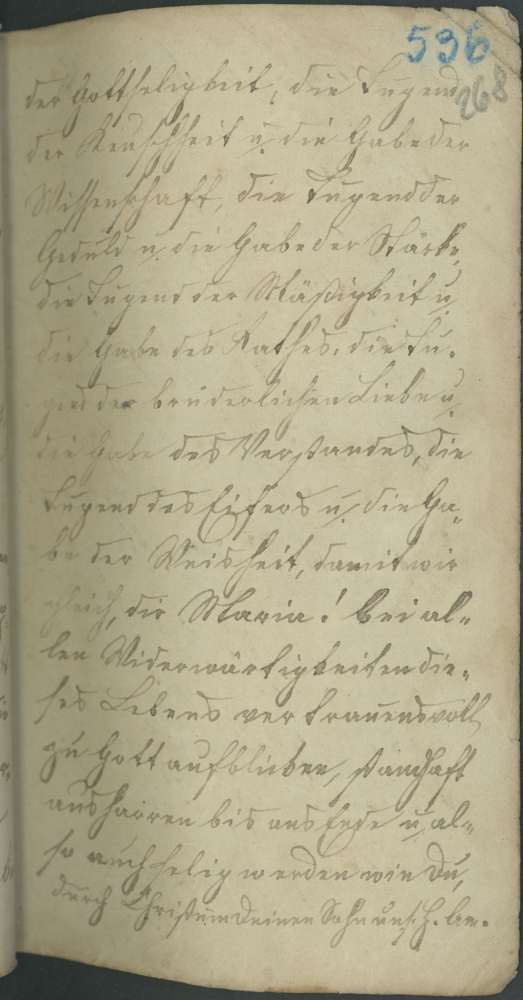 536
268
der Gottseligkeit, die Tugend
der Keuschheit u. die Gabe der
Wissenschaft, die Tugend der
Geduld u. die Gabe der Stärke,
die Tugend der Mäßigkeit u.
die Gabe des Rathes, die Tu-
gend der brüderlichen Liebe u.
die Gabe des Verstandes, die
Tugend des Eifers u. die Ga-
be der Weisheit, damit wir
gleich, dir Maria! bei al-
len Widerwärtigkeiten die-
ses Lebens vertrauensvoll
zu Gott aufblicken, standhaft
ausharren bis ans Ende u. al-
so auch selig werden wie Du,
durch Christum Deinen Sohn uns. H. Am.